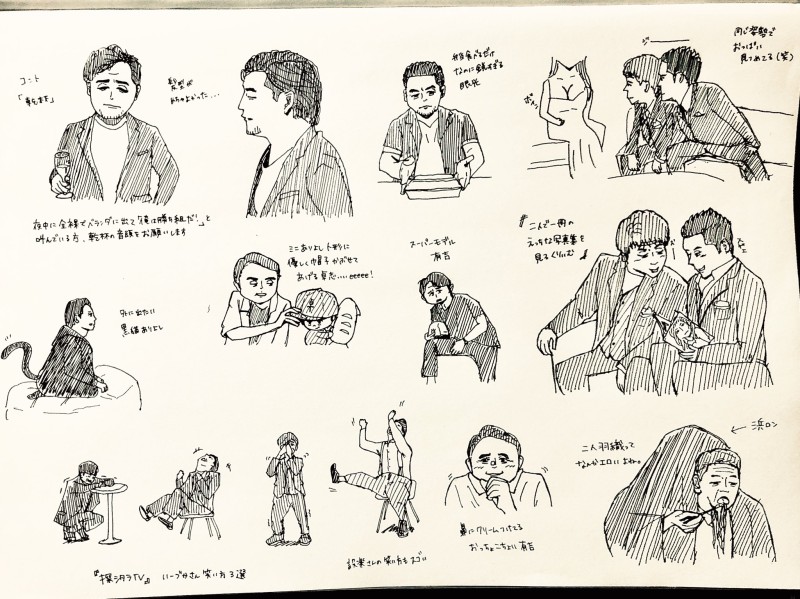 コント
「乾杯」
髪型が
めちゃよかった…
弁当食べるだけ
なのに鋭すぎる
眼光
ボン
ジー
同じ姿勢で
おっぱい
見つめてる(笑)
夜中に全裸でベランダに出て「俺は勝ち組だ!」と
叫んでいる方、乾杯の音頭をお願いします
ミニありよし人形に
優しく帽子かぶせて
あげる有吉....eeeee!
スーパーモデル
有吉
二人で一冊の
えっちな写真集を
見るくりぃむ
外に出たい
黒猫ありよし
『探シタラTV』 い〜ブカさん笑い方3選
設楽さんの笑い方もスゴい
鼻にクリームつけてる
おっちょこちょい有吉
二人羽織って
なんかエロいよね。
←浜ロン